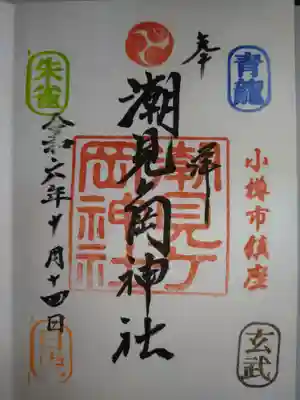 青龍
小樽市鎮座
玄武
奉拝
潮見岡神社
潮見ケ
岡神社
朱雀
令和六年十月十四日